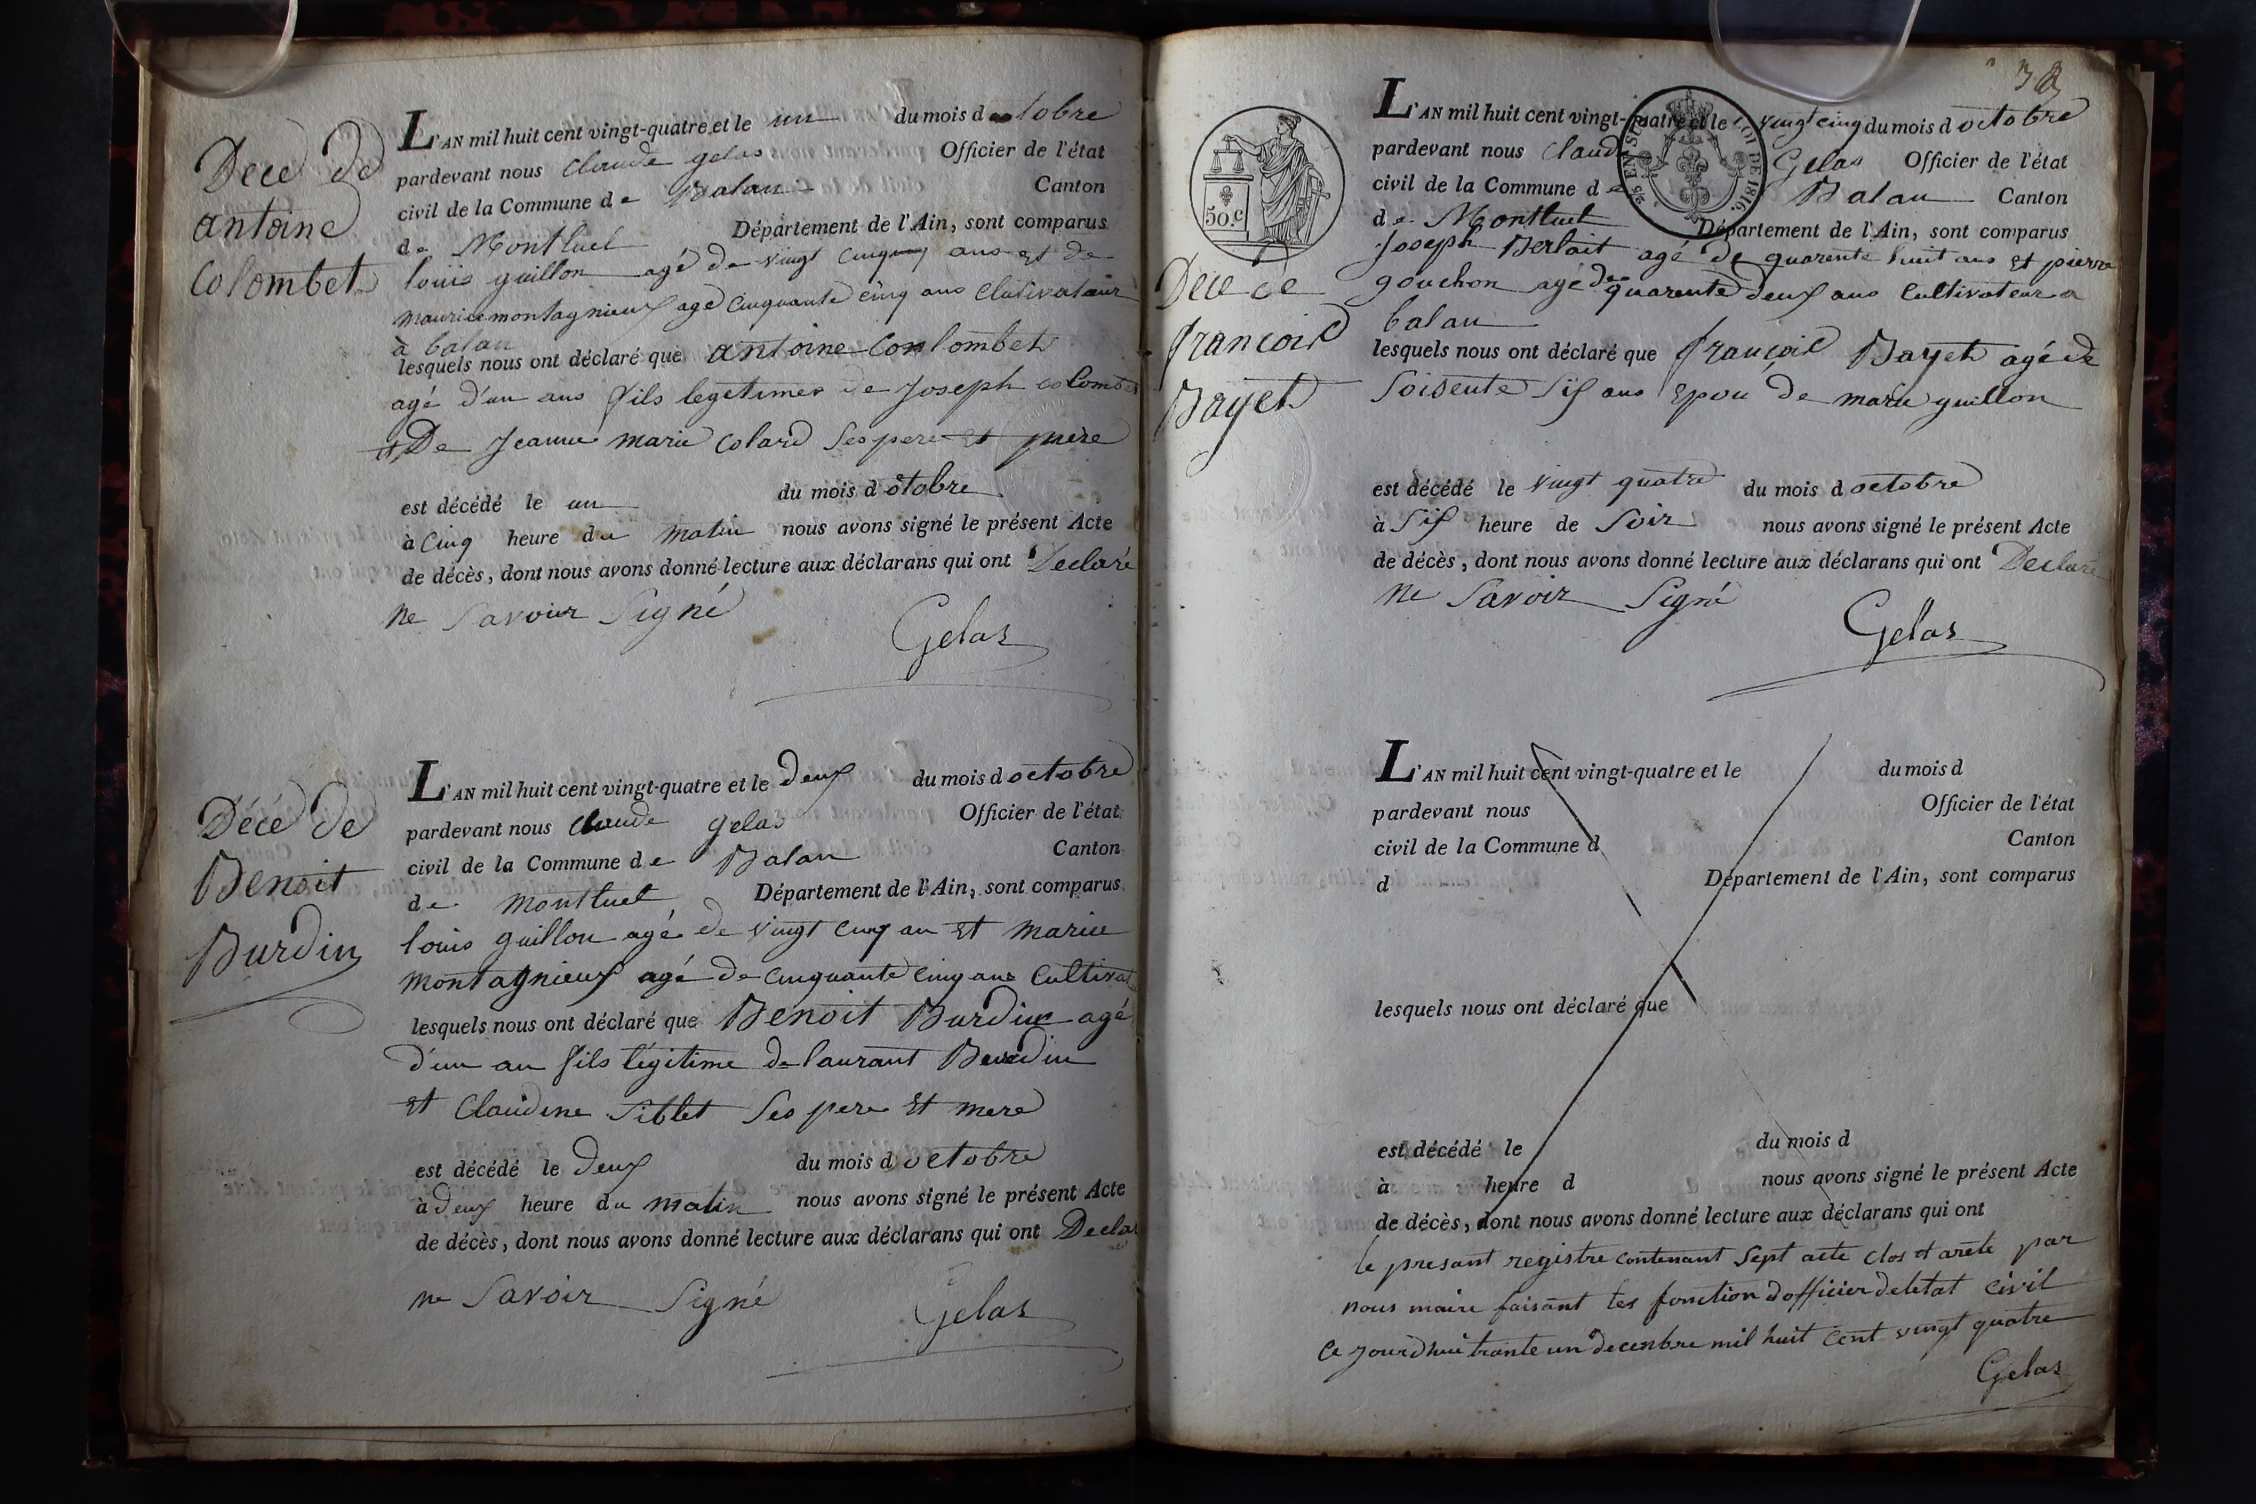 Décé de
antoine
Colombet
L'AN mil huit cent vingt-quatre et le un du mois d octobre
pardevant nous Claude gelas Officier de l'état
civil de la Commune de Balan Canton
de Montluel Département de l'Ain, sont comparus
louis guillon agé de vingt cinq ans et de
maurice montagnieux agé cinquante cinq ans Clutivateur
à balan
lesquels nous ont déclaré que antoine Conlombet
agé d'un ans fils legetimes de Joseph colombet
et De Jeanne marie colard ses pere et mère
est décédé le un du mois d'otobre
à Cinq heure du matin nous avons signé le présent Acte
de décès, dont nous avons donné lecture aux déclarans qui ont Declaré
ne Savoir Signé
Gelas
Décé de
Benoit
Burdin
L'AN mil huit cent vingt-quatre et le deux du mois d octobre
pardevant nous Claude gelas Officier de l'état
civil de la Commune de Balan Canton
de montluel Département de l'Ain, sont comparus
louis guillon agé de vingt cinq an et
montagnieux agé de cinquante cinq ans Cultivat
lesquels nous ont déclaré que Benoit Burdin agé
d'un an fils légitime de laurant Burdin
et Claudine Siblet ses pere et mere
est décédé le deux du mois d octobre
à deux heure du matin nous avons signé le présent Acte
de décès, dont nous avons donné lecture aux déclarans qui ont Decla
ne Savoir Signé
Gelas
38
50.c
EN SUS LOI DE 1816.
Décé de
françois
Bayet
L'AN mil huit cent vingt-quatre et le vingt cinq du mois d octobre
pardevant nous Claude Gelas Officier de l'état
civil de la Commune de Balan Canton
de Montluel Département de l'Ain, sont comparus
Joseph Berlait agé de quarente huit ans et pierre
gouchon agé de quarente deux ans Cultivateur a
balan
lesquels nous ont déclaré que françois Bayet agé de
soisente six ans Epou de marie guillon
est décédé le vingt quatre du mois d octobre
à six heure de Soir nous avons signé le présent Acte
de décès, dont nous avons donné lecture aux déclarans qui ont Declaré
ne Savoir Signé
Gelas
L'AN mil huit cent vingt-quatre et le du mois d
pardevant nous Officier de l'état
civil de la Commune d Canton
d Département de l'Ain, sont comparus
lesquels nous ont déclaré que
est décédé le du mois d
à heure d nous avons signé le présent Acte
de décès, dont nous avons donné lecture aux déclarans qui ont
le presant registre contenant Sept acte clos et arete par
nous maire faisant les fonction dofficier deletat civil
ce jourdhui trante un decenbre mil huit cent vingt quatre
Gelas